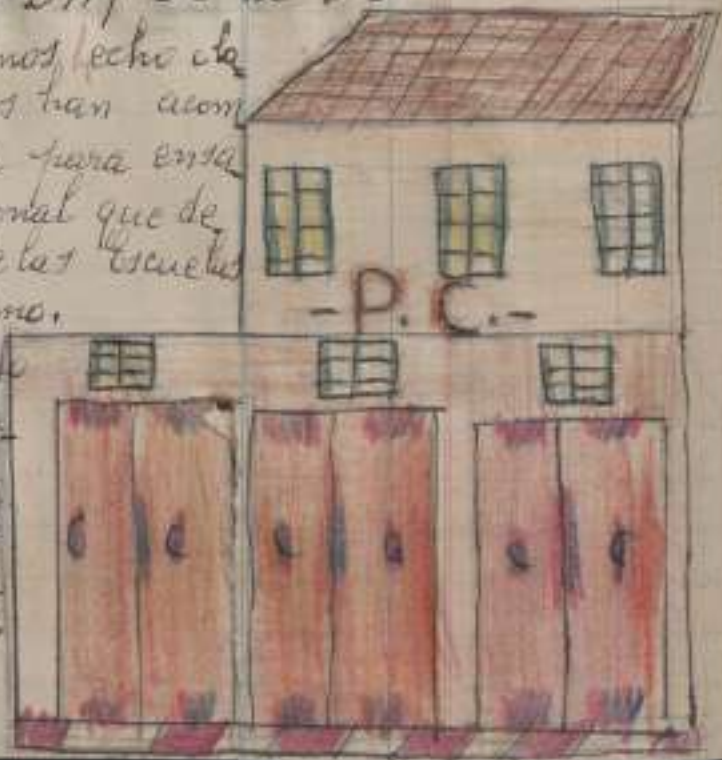 nos hecho cla
s han acom
para ensa
onal que de
e las Escuelas
mo.
- P. C. -